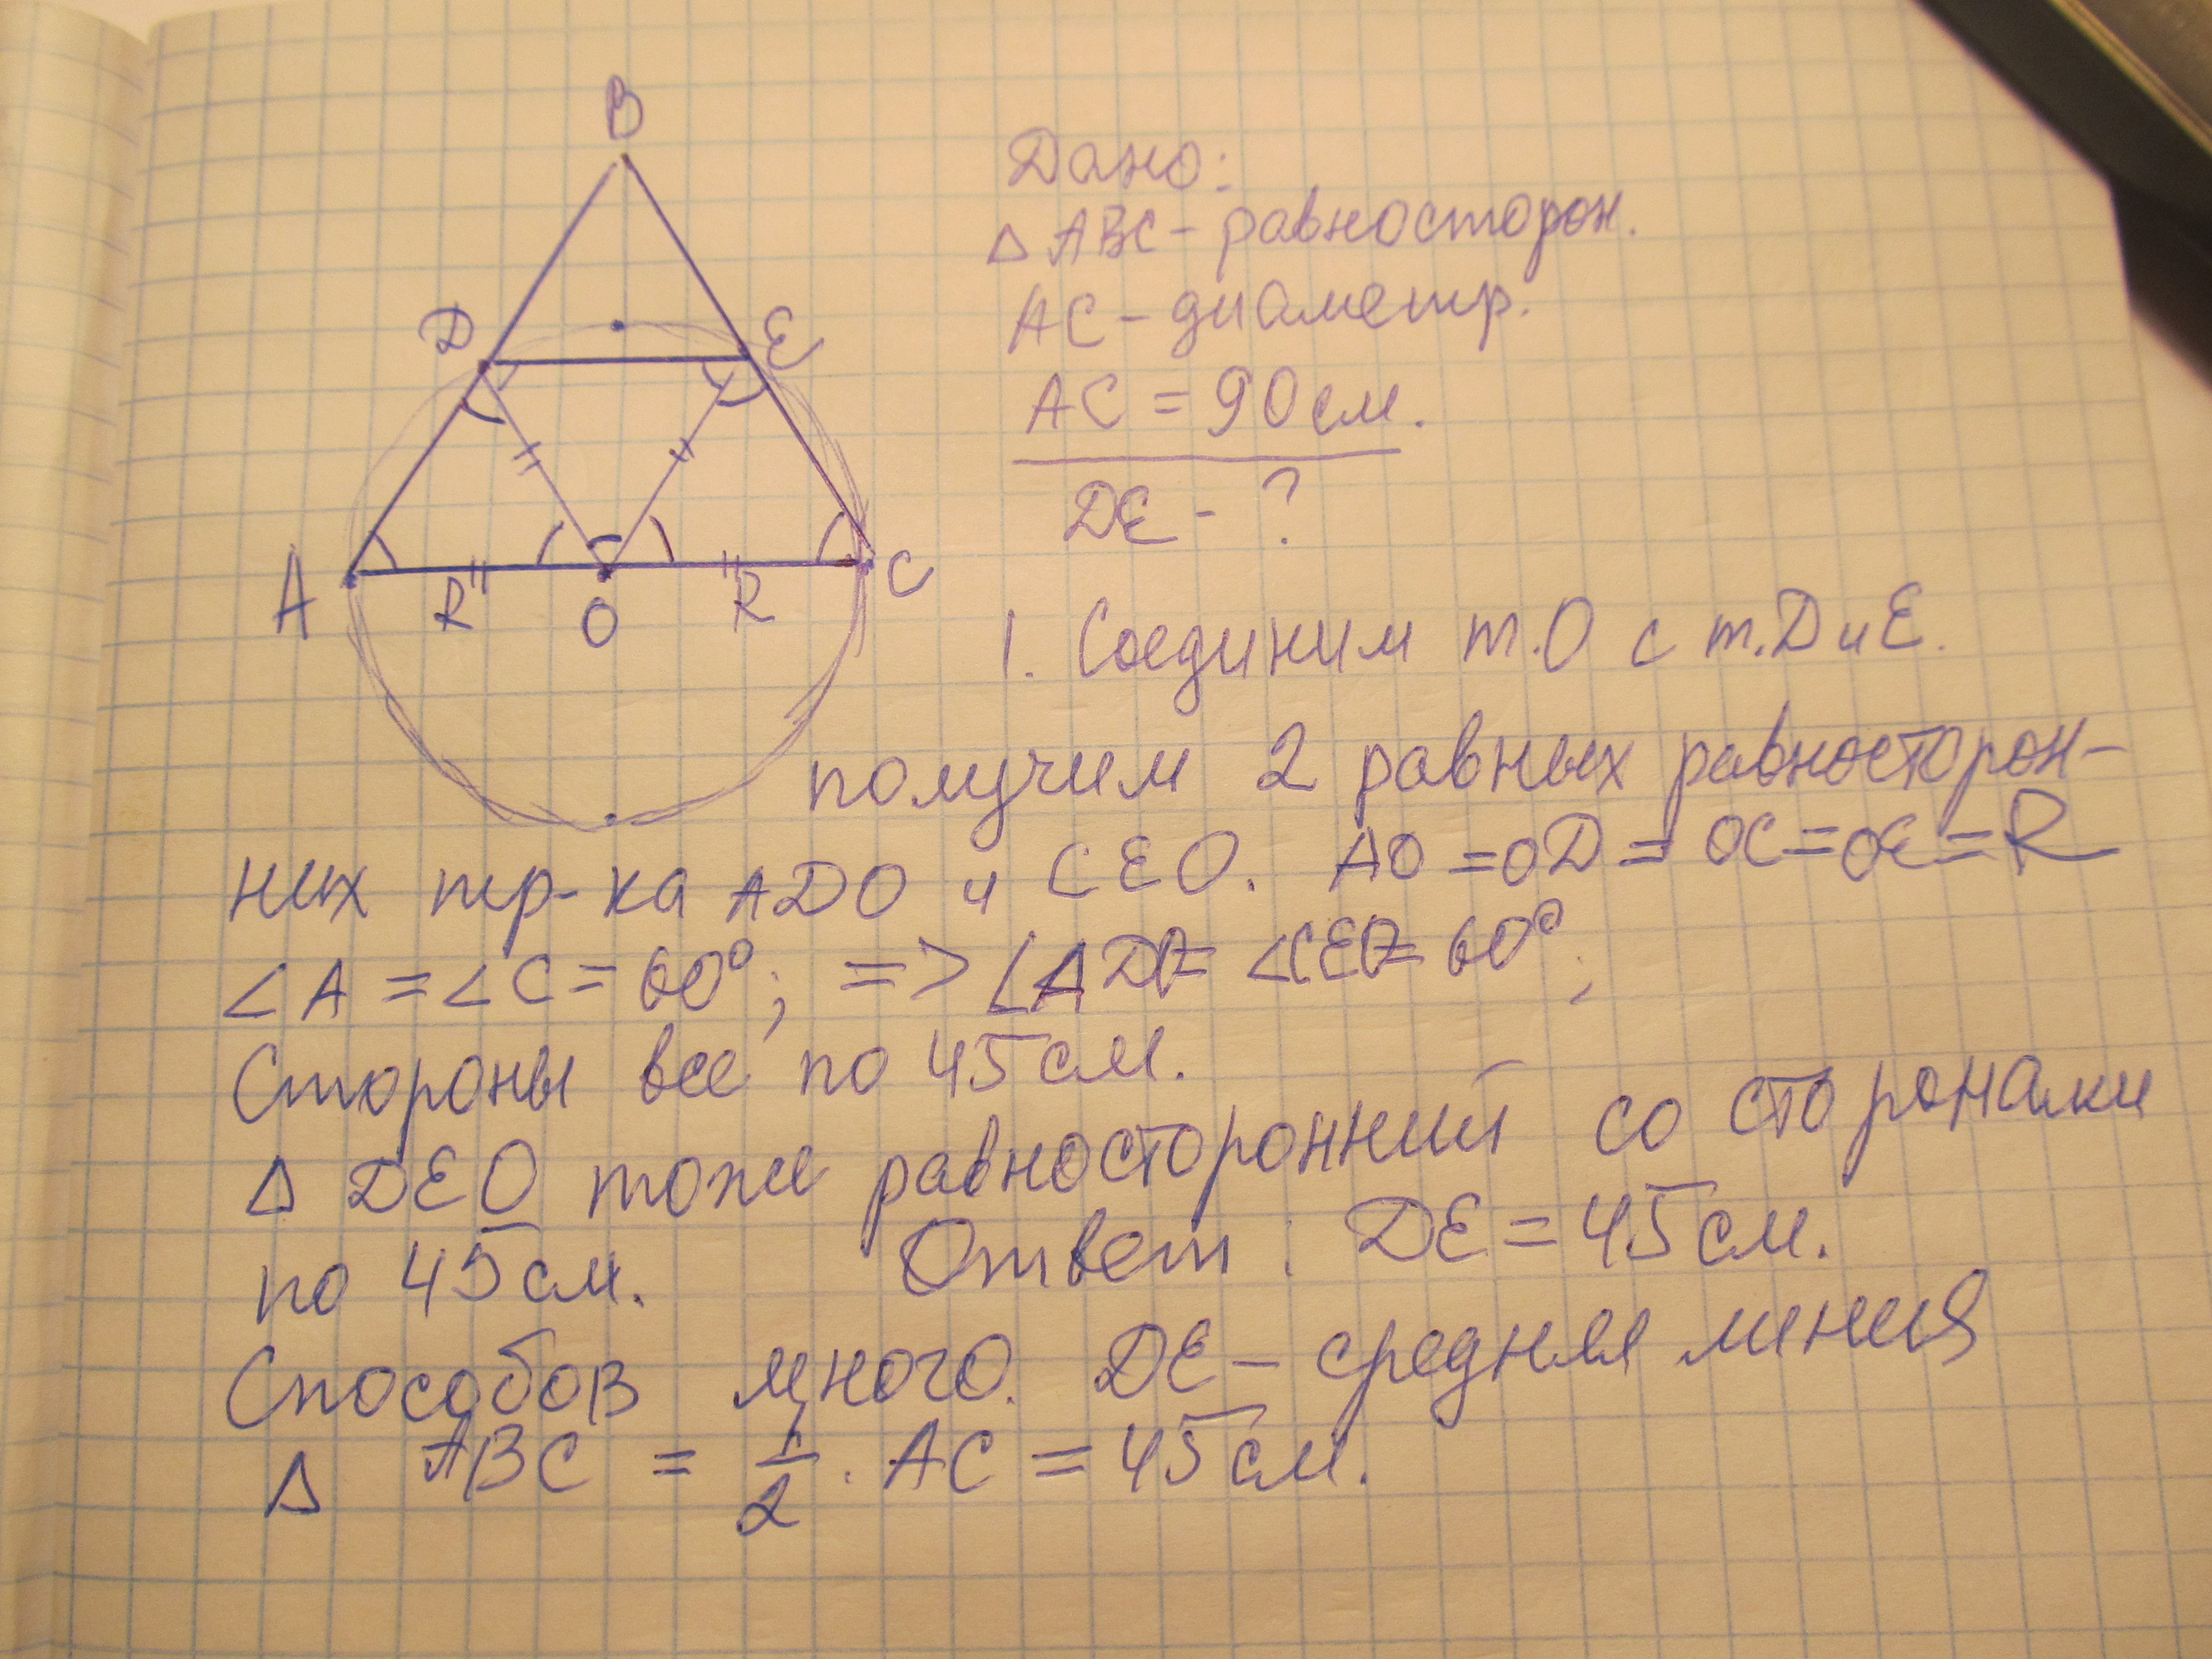 B
D
E
A
R
O
R
C
Дано:
△ ABC - равносторон.
AC - диаметр.
AC = 90 см.
DE - ?
1. Соединим т.O с т.D и E.
получим 2 равных равносторон-
них тр-ка ADO и CEO. AO = OD = OC = OE = R
∠A = ∠C = 60°; => ∠ADO = ∠CEO = 60°;
Стороны все по 45 см.
△ DEO тоже равносторонний со сторонами
по 45 см. Ответ: DE = 45 см.
Способов много. DE - средняя линия
△ ABC = 1/2 · AC = 45 см.